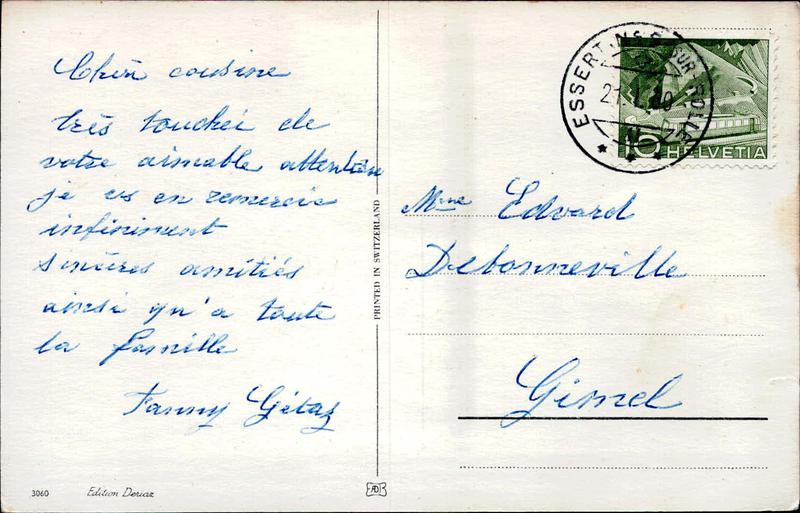 Chère cousine
très touchée de
votre aimable attention
je vs en remercie
infiniment
Sincères amitiés
ainsi qu'a toute
la famille
Fanny Gétaz
3060 Edition Deriaz
PRINTED IN SWITZERLAND
ESSERTINES SUR ROLLE
HELVETIA
Mme Edvard
Debonneville
Gimel